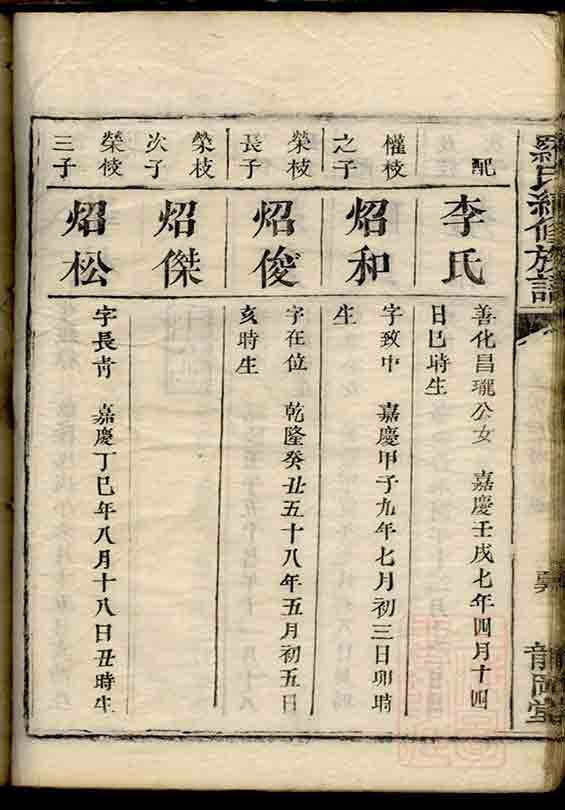 羅氏續修族譜
龍岡堂
配
李氏
善化昌瓏公女 嘉慶壬戌七年四月十四
日巳時生
權枝
之子
炤和
字致中 嘉慶甲子九年七月初三日卯時
生
榮枝
長子
炤俊
字在位 乾隆癸丑五十八年五月初五日
亥時生
榮枝
次子
炤傑
榮枝
三子
炤松
字長青 嘉慶丁巳年八月十八日丑時生